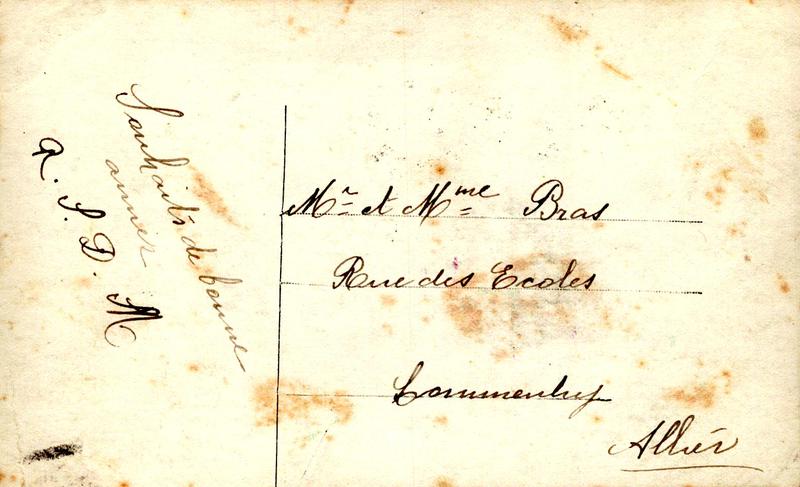 Souhaits de bonne
année
A. S. D. M
Mr et Mme Bras
Rue des Ecoles
Commentry
Allier